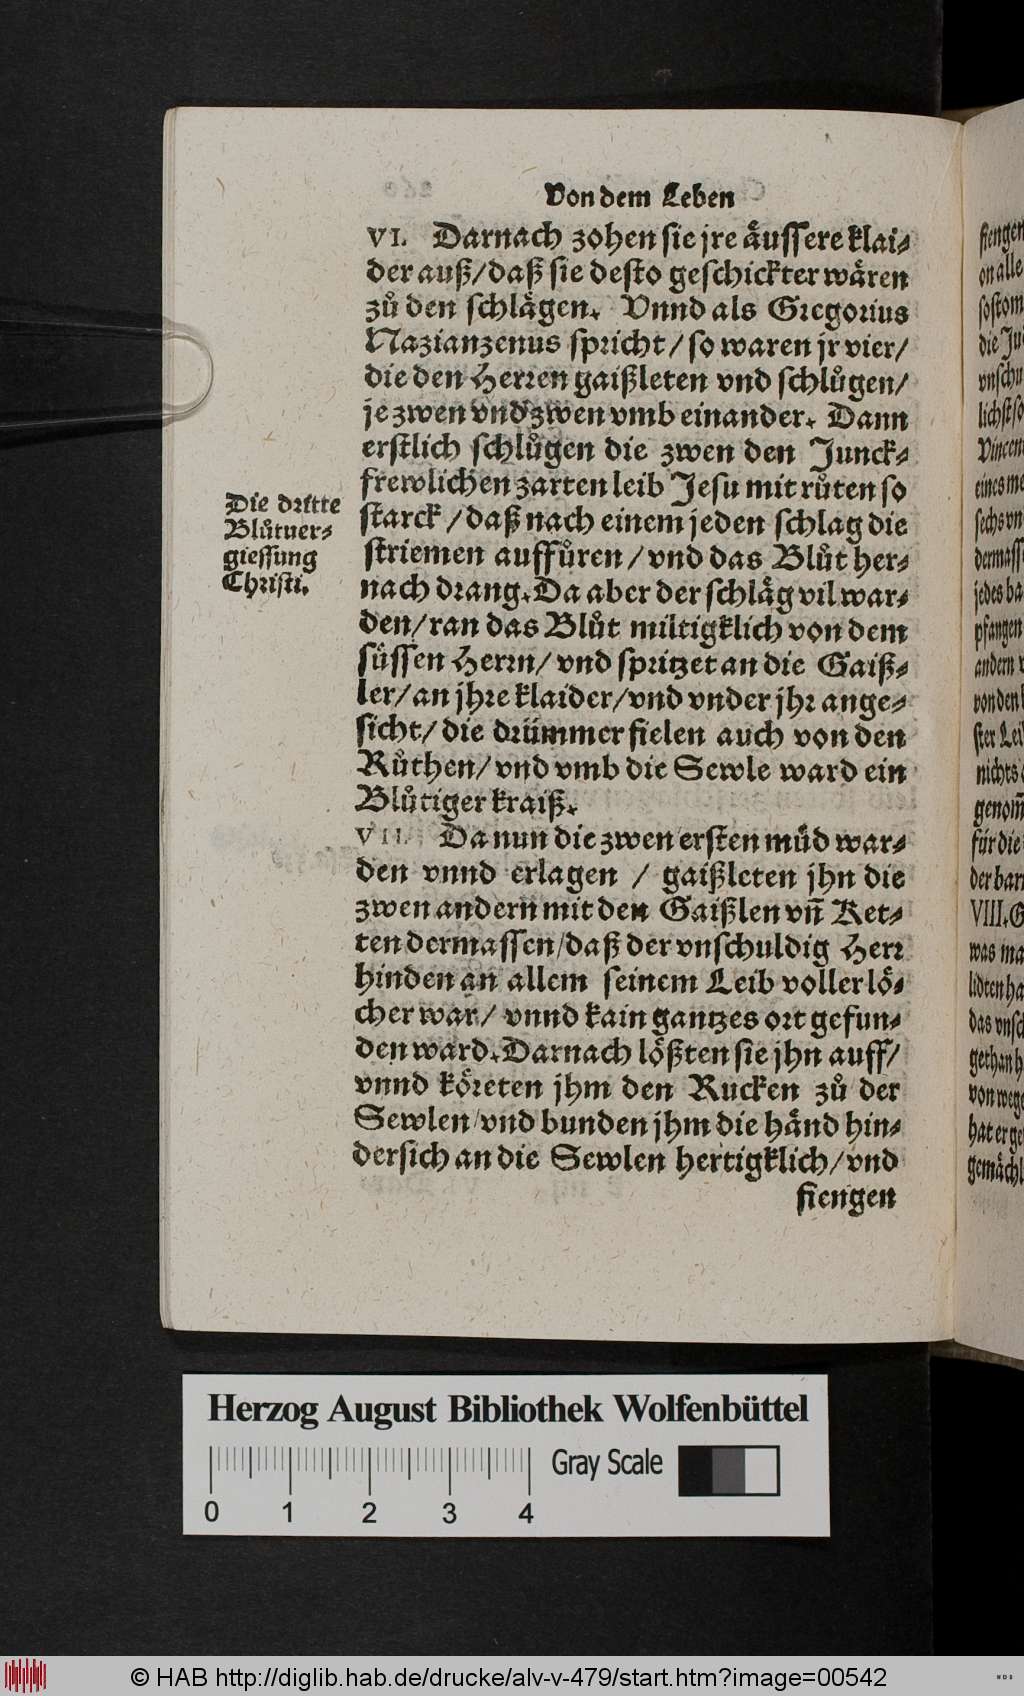 Von dem Leben
VI. Darnach zohen sie jre äussere klai-
der auß/daß sie desto geschickter wären
zů den schlägen. Vnnd als Gregorius
Nazianzenus spricht/so waren jr vier/
die den Herren gaißleten vnd schlůgen/
je zwen vnd zwen vmb einander. Dann
erstlich schlůgen die zwen den Junck-
frewlichen zarten leib Jesu mit růten so
starck/daß nach einem jeden schlag die
striemen auffůren/vnd das Blůt her-
nach drang. Da aber der schläg vil war-
den/ran das Blůt miltigklich von dem
süssen Herrn/vnd spritzet an die Gaiß-
ler/an jhre klaider/vnd vnder jhr ange-
sicht/die drümmer fielen auch von den
Růthen/vnd vmb die Sewle ward ein
Blůtiger kraiß.
Die dritte
Blůtuer-
giessung
Christi.
VII. Da nun die zwen ersten müd war-
den vnnd erlagen / gaißleten jhn die
zwen andern mit den Gaißlen vñ Ket-
ten dermassen/daß der vnschuldig Herr
hinden an allem seinem Leib voller lö-
cher war/ vnnd kain gantzes ort gefun-
den ward. Darnach lößten sie jhn auff/
vnnd köreten jhm den Rucken zů der
Sewlen/vnd bunden jhm die händ hin-
dersich an die Sewlen hertigklich/vnd
fiengen
fiengen
on alle
so stom
die Ju
vnschu
lichst so
Vincen
eines me
sechs vn
dermass
jedes ba
pfangen
andern v
von den
ster Lei
nichts
genom̃
für die
der barm
VIII. G
was ma
lidten ha
das vnsch
gethan h
von wege
hat er ge
gemächl
Herzog August Bibliothek Wolfenbüttel
Gray Scale
0 1 2 3 4
© HAB http://diglib.hab.de/drucke/alv-v-479/start.htm?image=00542